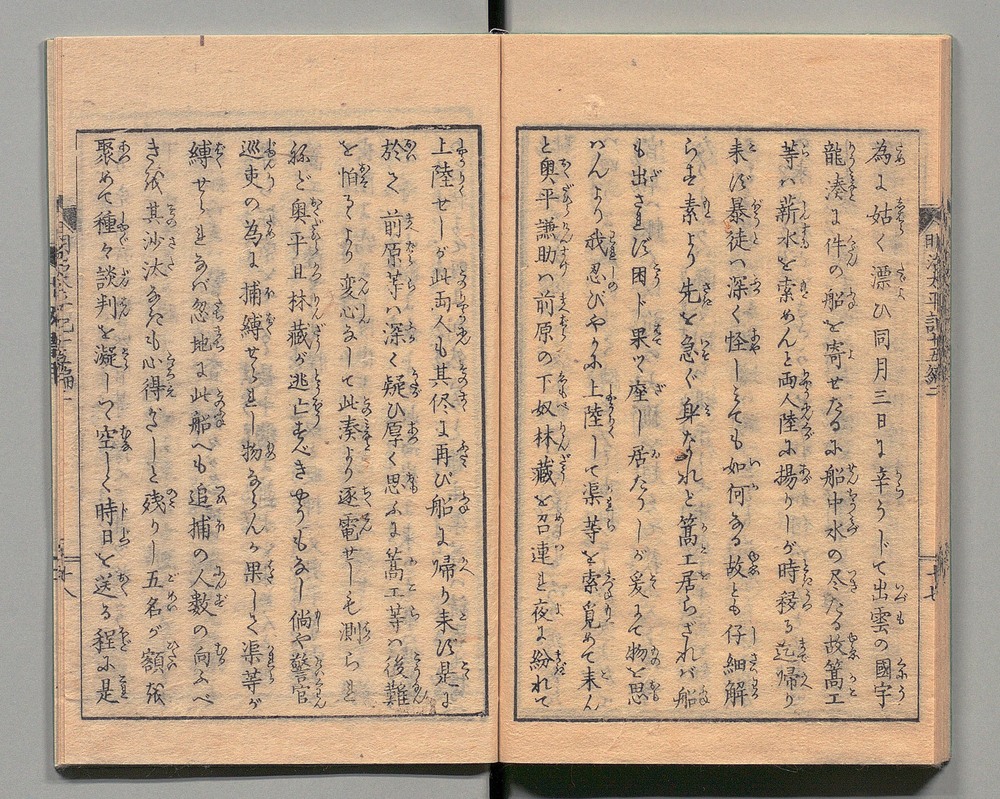 為に姑く漂ひ同月三日に辛うじて出雲の國宇
龍湊に件の船を寄せたるに船中水の尽たる故篙工
等ハ薪水を索めんと両人陸に揚りしが時移る迄帰り
来ず暴徒ハ深く怪しミても如何なる故とも仔細解
らず素より先を急ぐ身なれど篙工居らざれバ船
も出されず困じ果て座し居たりしが爰にて物を思
はんより我忍びやかに上陸して渠等を索覓めて来ん
と奥平謙助ハ前原の下奴林藏を召連れ夜に紛れて
上陸せしが此両人も其侭に再び船に帰り来ず是に
於て前原等ハ深く疑ひ厚く思ふに篙工等ハ後難
を怕るより変心なして此湊より逐電せしも測られ
ねど奥平且林藏が逃亡すべきやうもなし倘や警官
巡吏の為に捕縛せられし物ならんか果して渠等が
縛せられなバ忽地に此船へも追捕の人数の向ふべ
きに其沙汰なきも心得がたしと残りし五名が額を
聚めて種々談判を凝しつゝ空しく時日を送る程に是
明治太平記十五編二
十七
十八